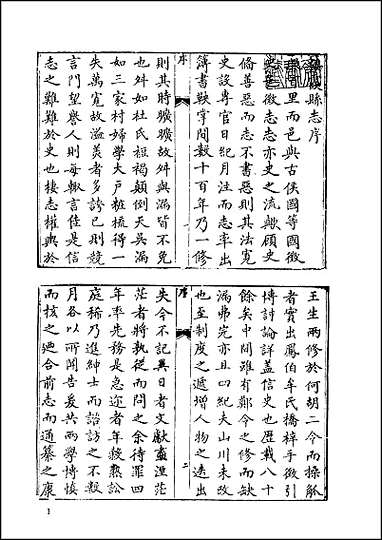 縣志序
里而邑與古侯國等國徵
徵志志亦史之流歟顧史
備善惡而志不書惡則其法寬
史設專官日紀月注而志率出
簿書鞅掌間數十百年乃一修
序
則其時曠曠故舛與漏皆不免
也舛如杜氏裋褐顛倒天吳漏
如三家村婦學大戶粧梳得一
失萬寬故溢美者多誇已則競
言門望譽人則每輒言佳是信
志之難難於史也棲志權輿於
王生兩修於何胡二令而操觚
者實出鳳伯牟氏橋梓手徵引
博討論詳蓋信史也歷載八十
餘矣中間雖有鄭令之修而缺
漏弗完亦且曰紀夫山川未改
也至制度之遞增人物之迭出
序
二
失今不記異日者文獻盡湮茫
茫者將孰從而問之余待罪四
年率先務是急迩者年穀熟訟
庭稀乃進紳士而諮訪之不穀
月各以所聞告爰共兩學博慎
而核之迺合前志而通纂之康
1